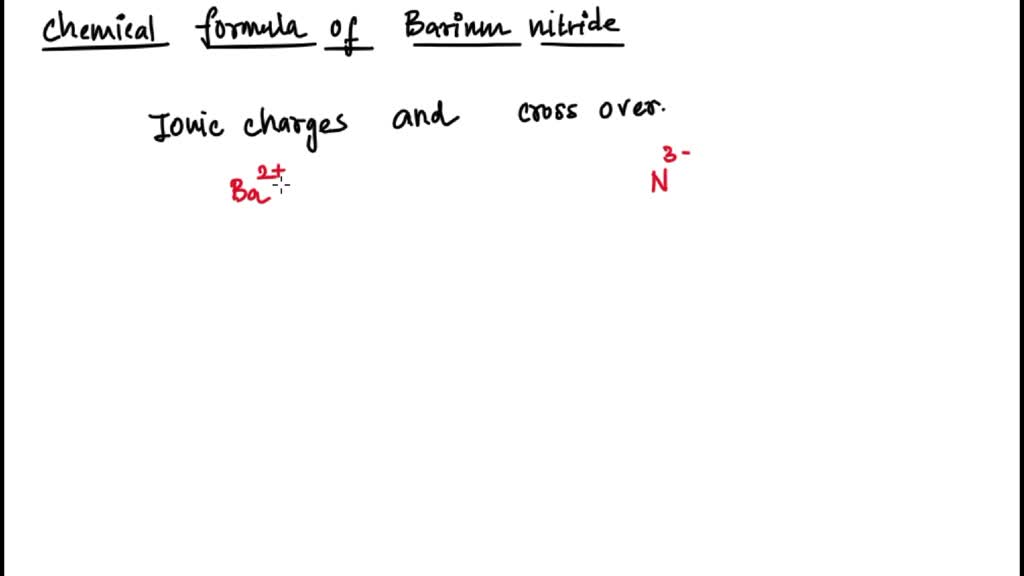 Chemical formula of Barium nitride
Ionic charges and cross over.
Ba²⁺ N³⁻